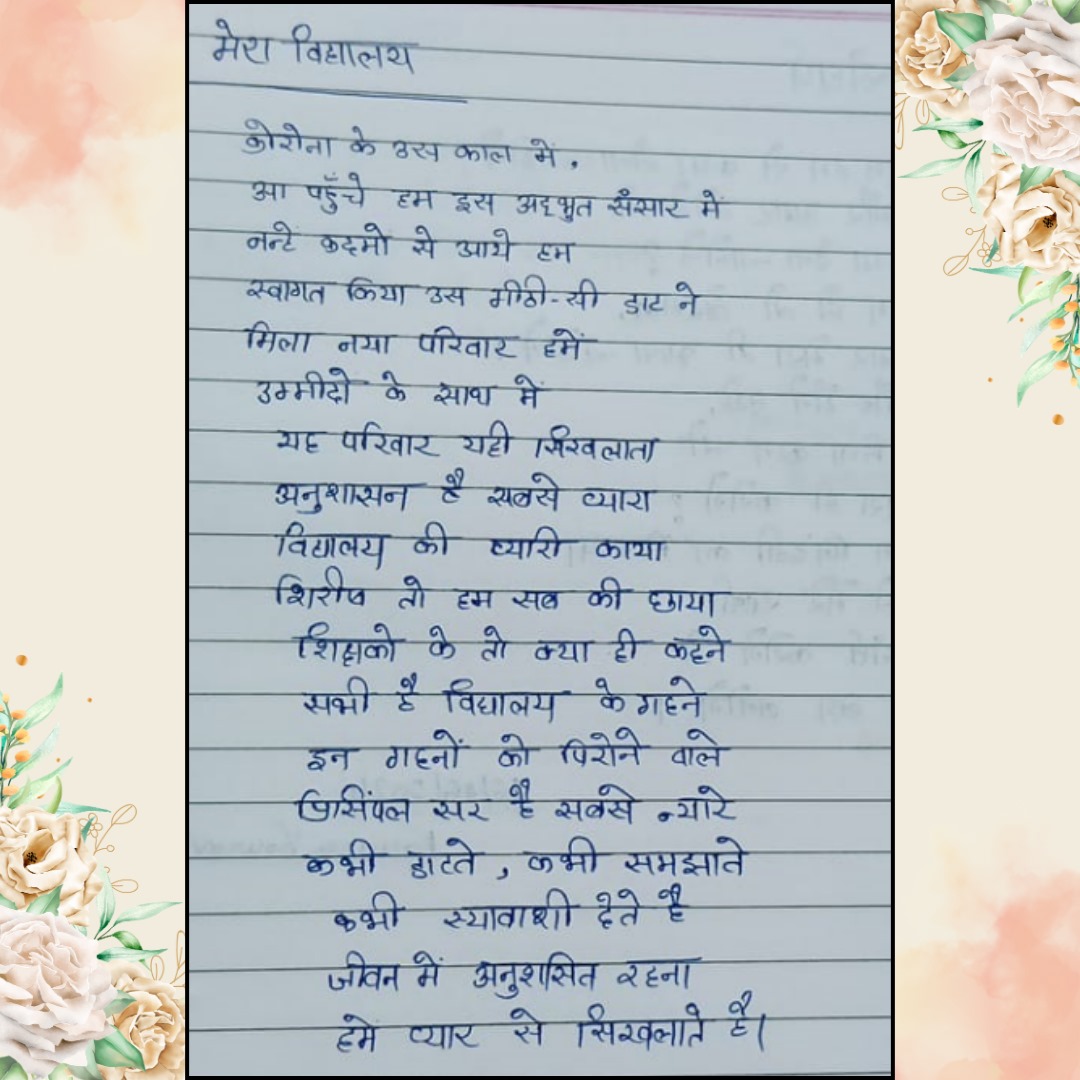 मेरा विद्यालय
कोरोना के उस काल में,
आ पहुँचे हम इस अद्भुत संसार में
नन्हे कदमों से आये हम
स्वागत किया उस मीठी-सी डाट ने
मिला नया परिवार हमें
उम्मीदों के साथ में
यह परिवार यही सिखलाता
अनुशासन है सबसे प्यारा
विद्यालय की प्यारी काया
शिरीष तो हम सब की छाया
शिक्षको के तो क्या ही कहने
सभी है विद्यालय के गहने
इन गहनों को पिरोने वाले
प्रिसिंपल सर है सबसे न्यारे
कभी डाटते, कभी समझाते
कभी स्यावाशी देते है
जीवन में अनुशसित रहना
हमे प्यार से सिखलाते है।